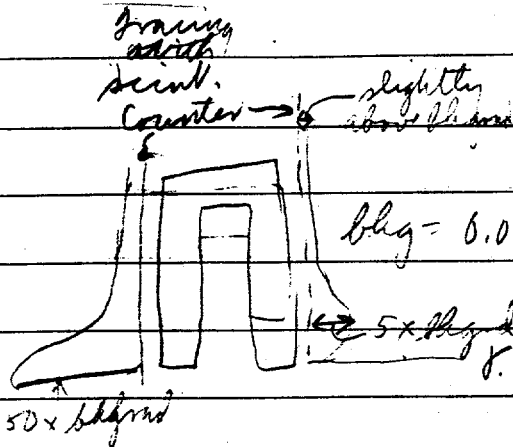 Tracing
with
scint.
Counter
slightly
above bkgrnd
bkg = 0.0
5 x bkgrnd
γ.
50 x bkgrnd